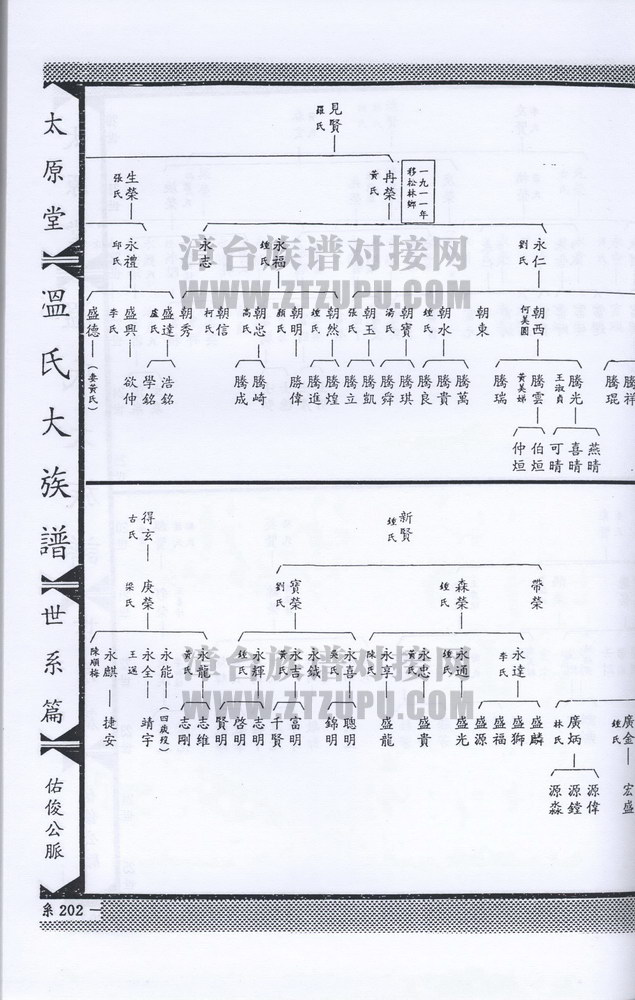 太原堂
溫氏大族譜
世系篇
佑俊公脈
系 202
見賢
羅氏
一九一一年
移松林鄉
冉榮
黃氏
生榮
張氏
永仁
劉氏
永福
鍾氏
永志
永禮
邱氏
朝西
何美園
朝東
朝水
鍾氏
朝寶
湯氏
朝玉
張氏
朝然
鍾氏
朝明
顏氏
朝忠
高氏
朝信
柯氏
朝秀
盛達
盧氏
盛興
李氏
盛德
(妻黃氏)
騰祥
騰琨
騰光
王淑貞
騰雲
黃美娣
騰瑞
騰萬
騰貴
騰良
騰琪
騰舜
騰凱
騰立
騰煌
騰進
勝偉
騰崎
騰成
浩銘
學銘
欲仲
燕晴
喜晴
可晴
伯烜
仲烜
新賢
鍾氏
得玄
古氏
帶榮
森榮
鍾氏
寶榮
劉氏
庚榮
梁氏
永達
李氏
永通
鍾氏
永忠
黃氏
永享
陳氏
永喜
吳氏
永鉞
永吉
黃氏
永輝
鍾氏
永龍
黃氏
永能
(四歲歿)
永全
王逕
永麒
陳順梅
廣金
鍾氏
廣炳
林氏
盛麟
盛獅
盛福
盛源
盛光
盛貴
盛龍
聰明
錦明
富明
千賢
志明
啓明
賢明
志維
志剛
靖宇
捷安
宏盛
源偉
源鏜
源淼
漳台族谱对接网
WWW.ZTZUPU.COM
漳台族谱对接网
WWW.ZTZUPU.COM